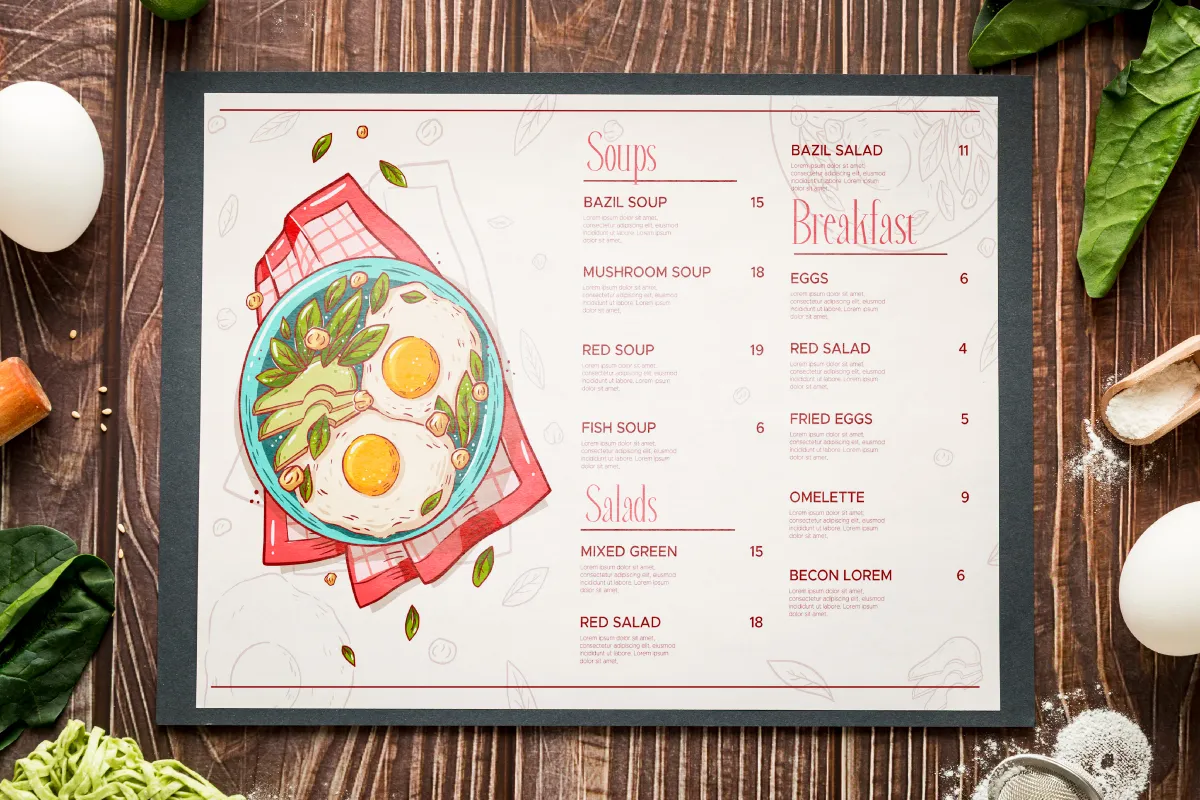 Soups
BAZIL SOUP 15
Lorem ipsum dolor sit amet,
consectetur adipiscing elit, eiusmod
incididunt ut labore. Lorem ipsum
dolor sit amet,
MUSHROOM SOUP 18
Lorem ipsum dolor sit amet,
consectetur adipiscing elit, eiusmod
incididunt ut labore. Lorem ipsum
dolor sit amet,
RED SOUP 19
Lorem ipsum dolor sit amet,
consectetur adipiscing elit, eiusmod
incididunt ut labore. Lorem ipsum
dolor sit amet,
FISH SOUP 6
Lorem ipsum dolor sit amet,
consectetur adipiscing elit, eiusmod
incididunt ut labore. Lorem ipsum
dolor sit amet,
Salads
MIXED GREEN 15
Lorem ipsum dolor sit amet,
consectetur adipiscing elit, eiusmod
incididunt ut labore. Lorem ipsum
dolor sit amet,
RED SALAD 18
Lorem ipsum dolor sit amet,
consectetur adipiscing elit, eiusmod
incididunt ut labore. Lorem ipsum
dolor sit amet,
BAZIL SALAD 11
Lorem ipsum dolor sit amet,
consectetur adipiscing elit, eiusmod
incididunt ut labore. Lorem ipsum
dolor sit amet,
Breakfast
EGGS 6
Lorem ipsum dolor sit amet,
consectetur adipiscing elit, eiusmod
incididunt ut labore. Lorem ipsum
dolor sit amet,
RED SALAD 4
Lorem ipsum dolor sit amet,
consectetur adipiscing elit, eiusmod
incididunt ut labore. Lorem ipsum
dolor sit amet,
FRIED EGGS 5
Lorem ipsum dolor sit amet,
consectetur adipiscing elit, eiusmod
incididunt ut labore. Lorem ipsum
dolor sit amet,
OMELETTE 9
Lorem ipsum dolor sit amet,
consectetur adipiscing elit, eiusmod
incididunt ut labore. Lorem ipsum
dolor sit amet,
BECON LOREM 6
Lorem ipsum dolor sit amet,
consectetur adipiscing elit, eiusmod
incididunt ut labore. Lorem ipsum
dolor sit amet,